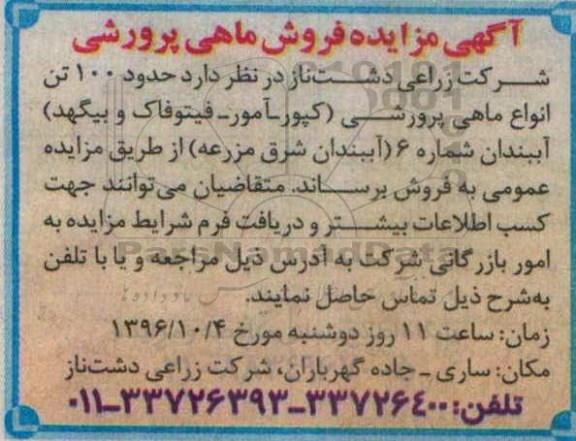 آگهی مزایده فروش ماهی پرورشی
شرکت زراعی دشت‌ناز در نظر دارد حدود ۱۰۰ تن
انواع ماهی پرورشی (کپور-آمور-فیتوفاک و بیگهد)
آببندان شماره ۶ (آببندان شرق مزرعه) از طریق مزایده
عمومی به فروش برساند. متقاضیان می‌توانند جهت
کسب اطلاعات بیشتر و دریافت فرم شرایط مزایده به
امور بازرگانی شرکت به آدرس ذیل مراجعه و یا با تلفن
به‌شرح ذیل تماس حاصل نمایند.
زمان: ساعت ۱۱ روز دوشنبه مورخ ۱۳۹۶/۱۰/۴
مکان: ساری - جاده گهرباران، شرکت زراعی دشت‌ناز
تلفن: ۳۳۷۲۶۴۰۰-۳۳۷۲۶۳۹۳-۰۱۱
ParsNamadData